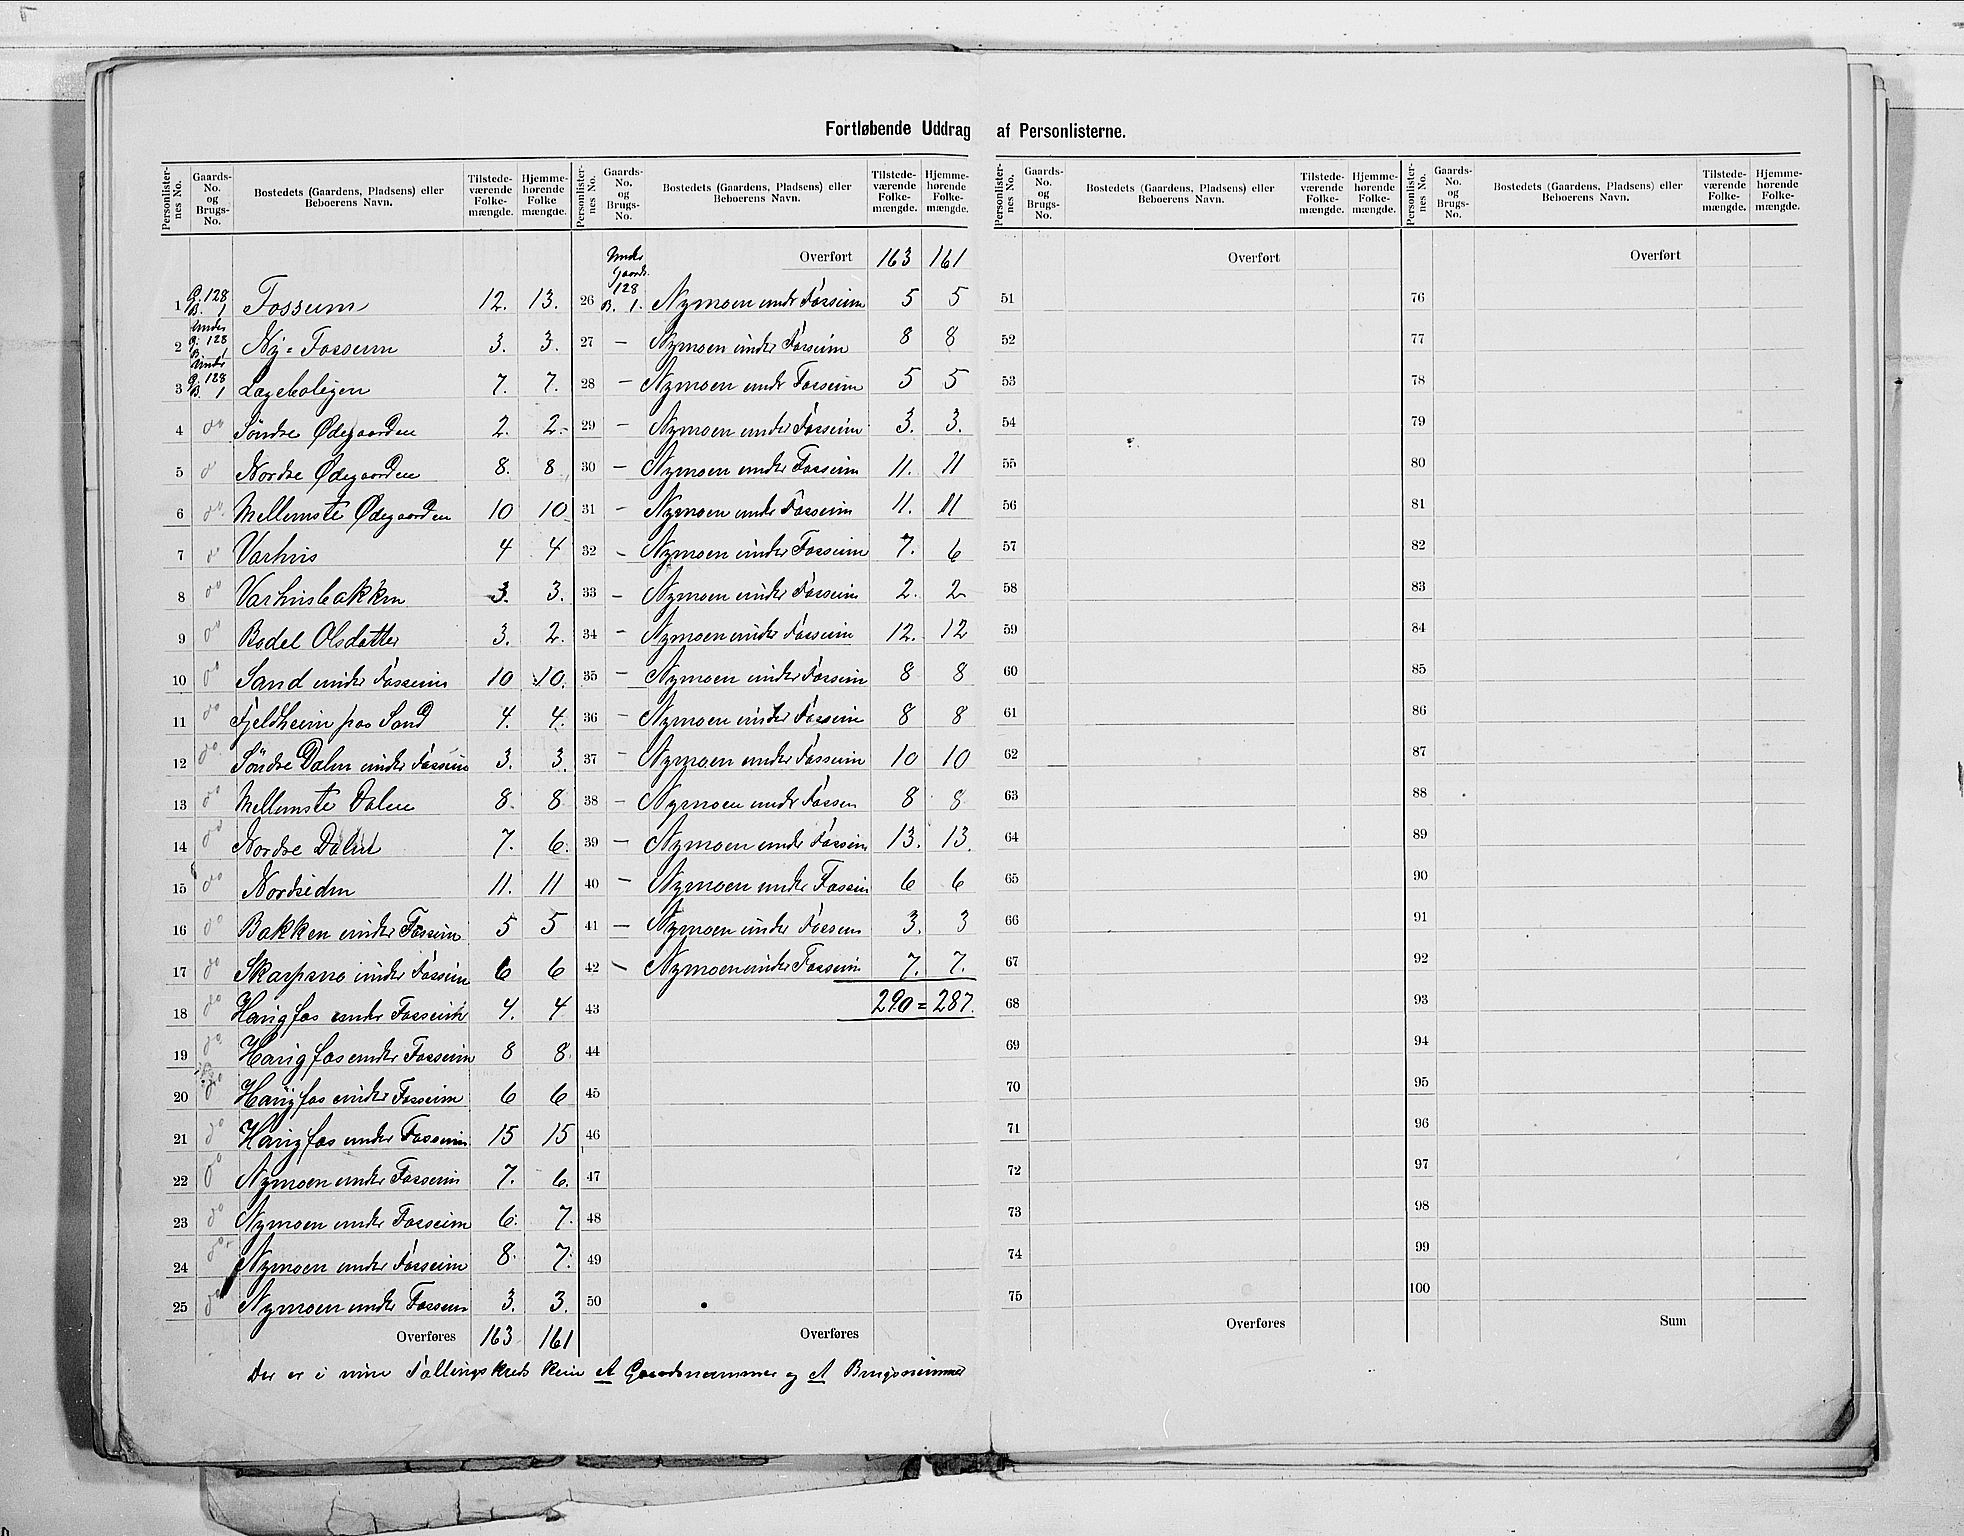 Fortløbende Uddrag af Personlisterne.
Personlisternes No. Gaards-No. og Brugs-No. Bostedets (Gaardens, Pladsens) eller Beboerens Navn. Tilstedeværende Folkemængde. Hjemmehørende Folkemængde.
1 G. 128 B. 1 Fossum 12. 13.
2 Under G. 128 B. 1 Ny-Fossum 3. 3.
3 Under G. 128 B. 1 Lægeboligen 7. 7.
4 do Søndre Ødegaarden 2. 2.
5 do Nordre Ødegaarden 8. 8
6 do Mellemste Ødegaarden 10 10
7 do Varhus 4 4
8 do Varhusbakken 3. 3.
9 do Bodel Olsdatter 3. 2.
10 do Sand under Fossum 10 10.
11 do Fjeldheim paa Sand 4. 4.
12 do Søndre Dalen under Fossum 3. 3.
13 do Mellemste Dalen 8. 8
14 do Nordre Dalen 7. 6.
15 do Nordseden 11. 11
16 do Bakken under Fossum 5 5
17 do Skarpsno under Fossum 6 6
18 do Haugfos under Fossum 4. 4
19 do Haugfos under Fossum 8 8
20 do Haugfos under Fossum 6 6
21 do Haugfos under Fossum 15 15
22 do Nymoen under Fossum 7. 6.
23 do Nymoen under Fossum 6. 7.
24 do Nymoen under Fossum 8. 7.
25 do Nymoen under Fossum 3. 3.
Overføres 163 161
Personlisternes No. Gaards-No. og Brugs-No. Bostedets (Gaardens, Pladsens) eller Beboerens Navn. Tilstedeværende Folkemængde. Hjemmehørende Folkemængde.
Overført 163 161
26 Under Gaards. 128 B. 1. Nymoen under Fossum 5 5
27 — Nymoen under Fossum 8 8
28 — Nymoen under Fossum 5 5
29 — Nymoen under Fossum 3. 3.
30 — Nymoen under Fossum 11. 11
31 — Nymoen under Fossum 11. 11
32 — Nymoen under Fossum 7. 6
33 — Nymoen under Fossum 2. 2
34 — Nymoen under Fossum 12. 12
35 — Nymoen under Fossum 8 8
36 — Nymoen under Fossum 8 8
37 — Nymoen under Fossum 10 10
38 — Nymoen under Fossum 8 8
39 — Nymoen under Fossum 13. 13.
40 — Nymoen under Fossum 6 6
41 — Nymoen under Fossum 3. 3
42 — Nymoen under Fossum 7. 7.
43 290 = 287.
44
45
46
47
48
49
50
Overføres
Der er i min Tællingskreds kun et Gaardsnummer og et Brugsnummer
Personlisternes No. Gaards-No. og Brugs-No. Bostedets (Gaardens, Pladsens) eller Beboerens Navn. Tilstedeværende Folkemængde. Hjemmehørende Folkemængde.
Overført
51
52
53
54
55
56
57
58
59
60
61
62
63
64
65
66
67
68
69
70
71
72
73
74
75
Overføres
Personlisternes No. Gaards-No. og Brugs-No. Bostedets (Gaardens, Pladsens) eller Beboerens Navn. Tilstedeværende Folkemængde. Hjemmehørende Folkemængde.
Overført
76
77
78
79
80
81
82
83
84
85
86
87
88
89
90
91
92
93
94
95
96
97
98
99
100
Sum